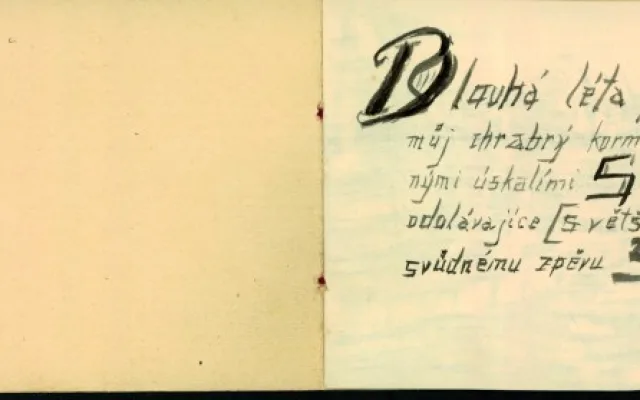 Dlouhá léta,
můj chrabrý korm
nými úskalími
odolávajíce [s větš
svůdnému zpěvu